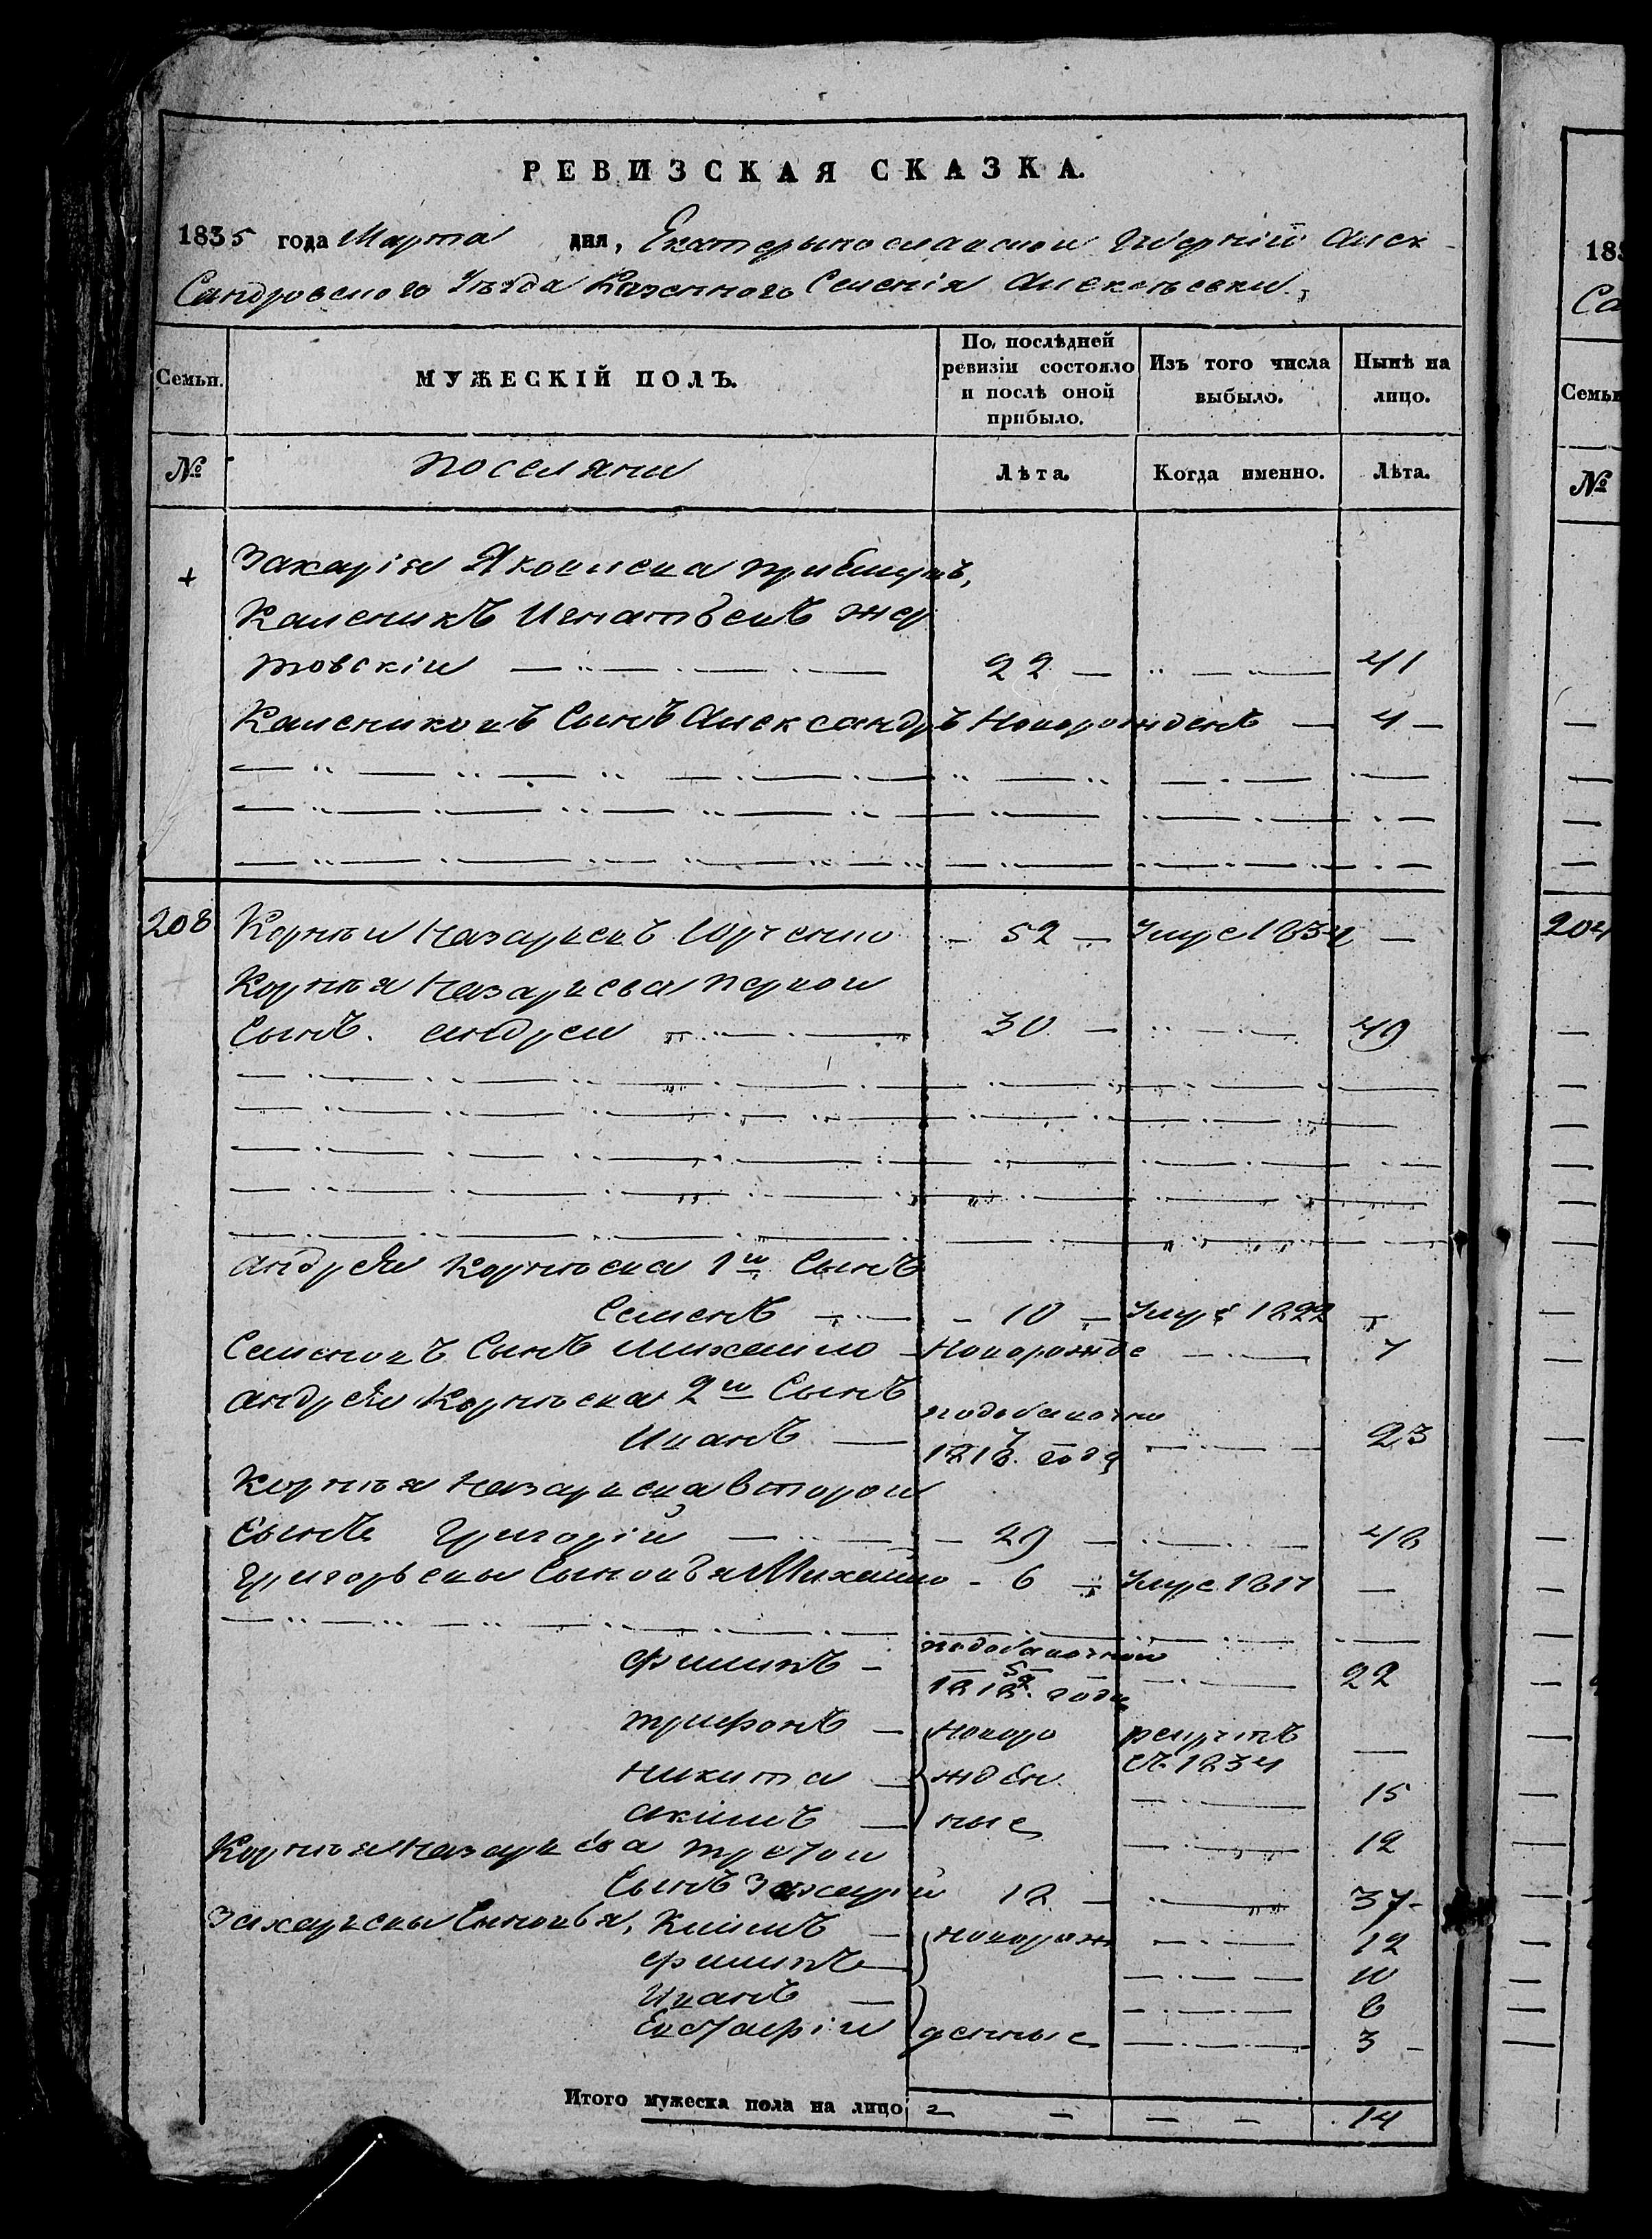 РЕВИЗСКАЯ СКАЗКА.
1835 года Марта дня, Екатерынославской Губерніи Алек
Сандровского Уѣзда Казенного Селенія Алексѣевки
Семьи. МУЖЕСКІЙ ПОЛЪ. По послѣдней ревизіи состояло и послѣ оной прибыло. Изъ того числа выбыло. Нынѣ на лицо.
№ поселяни Лѣта. Когда именно. Лѣта.
+ Захарія Яковлева
Каленикъ Игнатьевъ жер
товскій 22 41
Калениковъ Сынъ Александръ Новорожденъ 4
208 Корнѣй Назарьевъ Юрченко 52 Умре 1834
Корнѣя Назарьева первой
Сынъ. андрей 30 49
андрея Корнѣева 1й Сынъ
Семенъ 10 Умре 1822
Семеновъ Сынъ Михайло Новорожде 7
андрея Корнѣева 2й Сынъ
Иванъ 1818 года 23
Корнѣя Назарьева второй
Сынъ Григорій 29 48
Григорьевы Сыновья Михайло 6 Умре 1817
Филипъ года 22
трифонъ новоро рекрутъ
никита жден 1834 15
акимъ ные 12
Корнѣя Назарьева третой
Сынъ Захарій 12 37
Захарьевы Сыновья, Климъ новорож 12
Филипъ 10
Иванъ 6
Евстафій денные 3
Итого мужеска пола на лицо 14
183
Са
Семьи
№
204